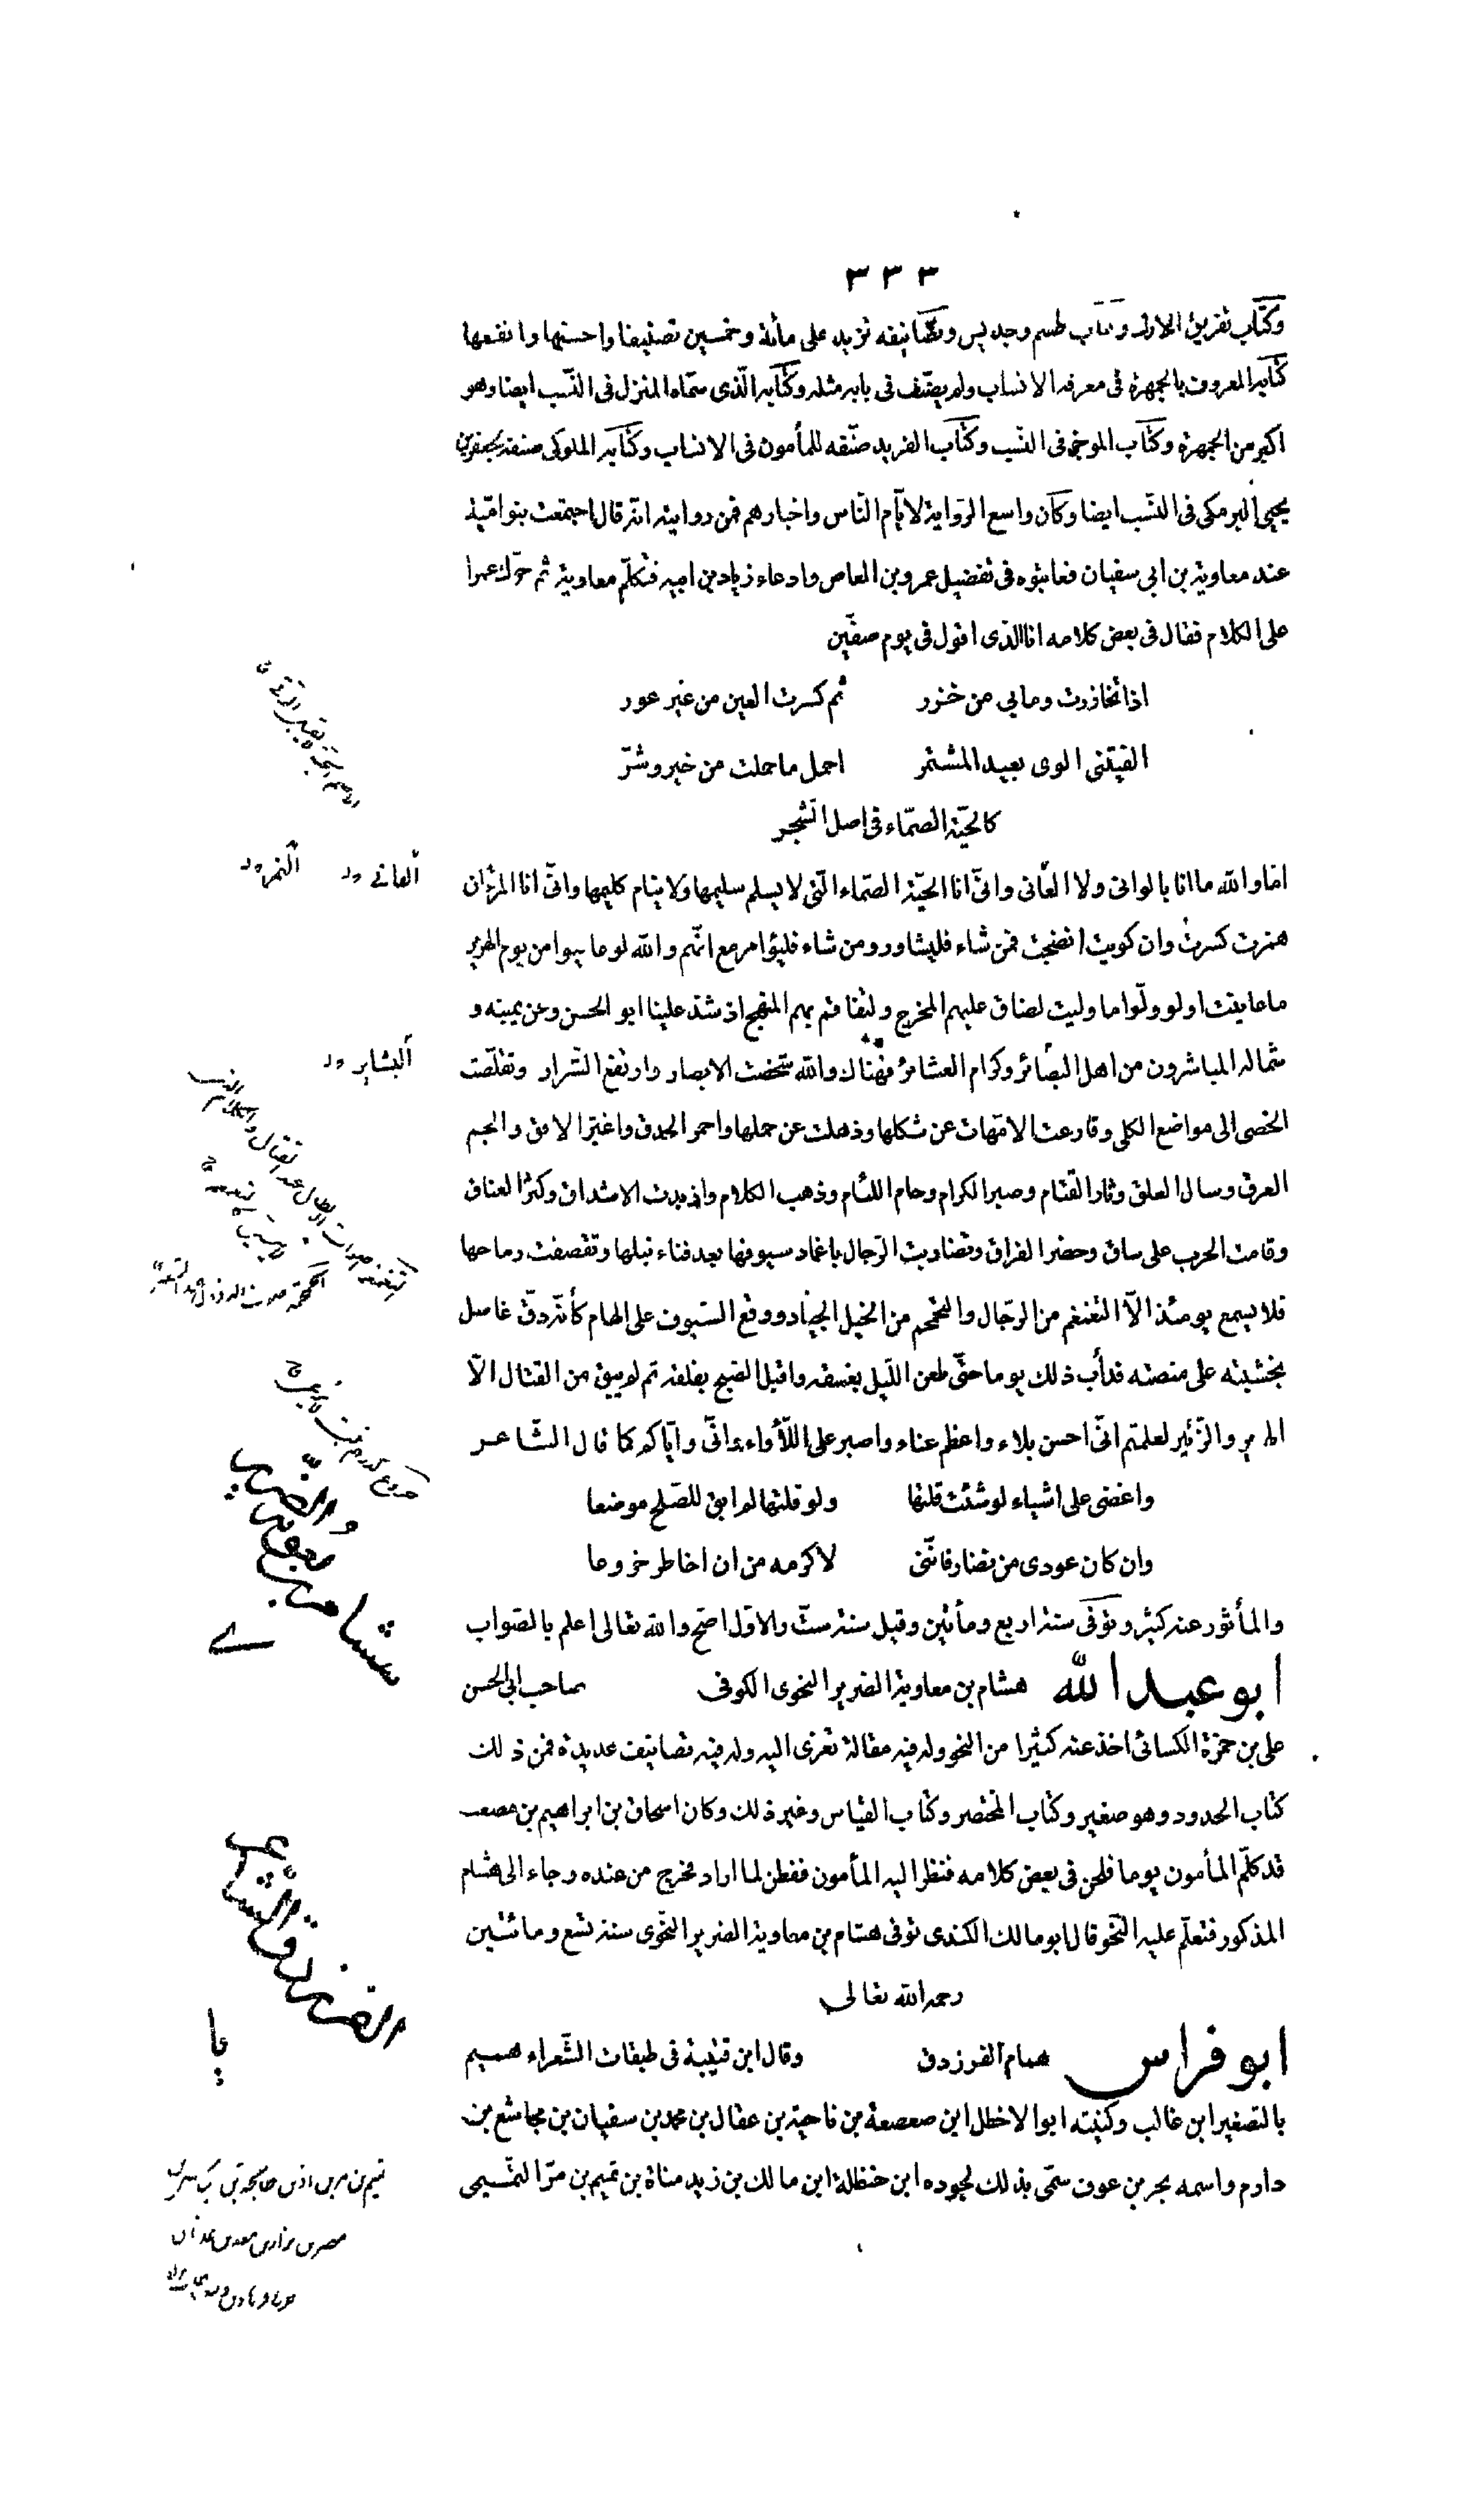 ٣٣٣
وكتاب تفريق الازد وكتاب طسم وجديس وتصانيفه تزيد على مأئة وخمسين تصنيفا واحسنها وانفعها
كتابه المعروف بالجمهرة فى معرفة الانساب ولم يصنّف فى بابه مثله وكتابه الّذى سمّاه المنزل فى النّسب ايضا وهو
اكبر من الجمهرة وكتاب الموجز فى النّسب وكتاب الفريد صنّفه للمأمون فى الانساب وكتابه الملوكى صنفه لجعفر بن
يحيى البرمكى فى النسّب ايضا وكان واسع الرّواية لايّام النّاس واخبارهم فمن روايته انّه قال اجتمعت بنو اميّة
عند معاوية بن ابى سفيان فعاتبوه فى تفضيل عمرو بن العاص وادعاء زياد بن ابيه فتكلّم معاوية ثم حرّك عمرا
على الكلام فقال فى بعض كلامه انا الذى اقول فى يوم صفّين
اذا تخازرت ومابى من خزر ثم كسرت العين من غير عور
الفيتنى الوى بعيد المستمر احمل ما حملت من خير وشرّ
كالحيّة الصمّاء فى اصل الشّجر
امّا والله ما انا بالوانى ولا الفانى وانّى انا الحيّة الصمّاء الّتى لا يسلم سليمها ولا ينام كليمها وانّى انا المرء ان
همزت كسرت وان كويت انضجت فمن شاء فليشاور ومن شاء فليؤامر مع انّهم والله لو عاينوا من يوم الهرير
ما عاينت او لو ولّوا ما وليت لضاق عليهم المخرج ولتفاقم بهم المنهج اذ شدّ علينا ابو الحسن وعن يمينه و
شماله المباشرون من اهل البصائر وكرام العشائر فهناك والله شخصت الابصار وارتفع الشّرار وتقلّصت
الخصى الى مواضع الكلى وقارعت الامّهات عن ثكلها وذهلت عن حملها واحمر الحدق واغبرّ الافق والجم
العرق وسال العلق وثار القتام وصبر الكرام وخام اللئام وذهب الكلام وازبدت الاشداق وكثر العناق
وقامت الحرب على ساق وحضر الفراق وتضاربت الرّجال باغماد سيوفها بعد فناء نبلها وتقصفت رماحها
فلا يسمع يومئذ الّا التغمغم من الرّجال والتحمحم من الخيل الجياد ووقع السّيوف على الهام كأنّه دقّ غاسل
بخشبته على منصته فدأب ذلك يوما حتّى طعن اللّيل بغسقه واقبل الصّبح بفلقه ثم لم يبق من القتال الّا
الهرير والزّئير لعلمتم انّى احسن بلاء واعظم عناء واصبر على اللّأواء وانّى وايّاكم كما قال الشّاعر
واغضى على اشياء لو شئت قلتها ولو قلتها لم ابق للصّلح موضعا
وان كان عودى من نضار فانّنى لاكرمه من ان اخاطر خروعا
والمأثور عنه كثير وتوفّى سنة اربع ومأتين وقيل سنة ستّ والاوّل اصّح والله تعالى اعلم بالصّواب
ابو عبد الله هشام بن معاوية الضرير النحوى الكوفى صاحب ابى الحسن
على بن حمزة الكسائى اخذ عنه كثيرا من النحو وله فيه مقالة تعزى اليه وله فيه تصانيف عديدة فمن ذلك
كتاب الحدود وهو صغير وكتاب المختصر وكتاب القياس وغير ذلك وكان اسحاق بن ابراهيم بن مصعب
قد كلّم المأمون يوما فلحن فى بعض كلامه فنظر اليه المأمون ففطن لما اراد فخرج من عنده وجاء الى هشام
المذكور فتعلّم عليه النّحو قال ابو مالك الكندى توفى هشام بن معاوية الضرير النّحوى سنة تسع ومائتين
رحمه الله تعالى
ابو فراس همام الفرزدق وقال ابن قتيبة فى طبقات الشّعراء هميم
بالتصغير ابن غالب وكنيته ابو الاخطل ابن صعصعة بن ناجية بن عقال بن محمد بن سفيان بن مجاشع بن
دارم واسمه بحر بن عوف سمّى بذلك لجوده ابن حنظلة ابن مالك بن زيد مناة بن تميم بن مرّ التّميمى
الفانى
البشاير
الفرزدق الشّاعر